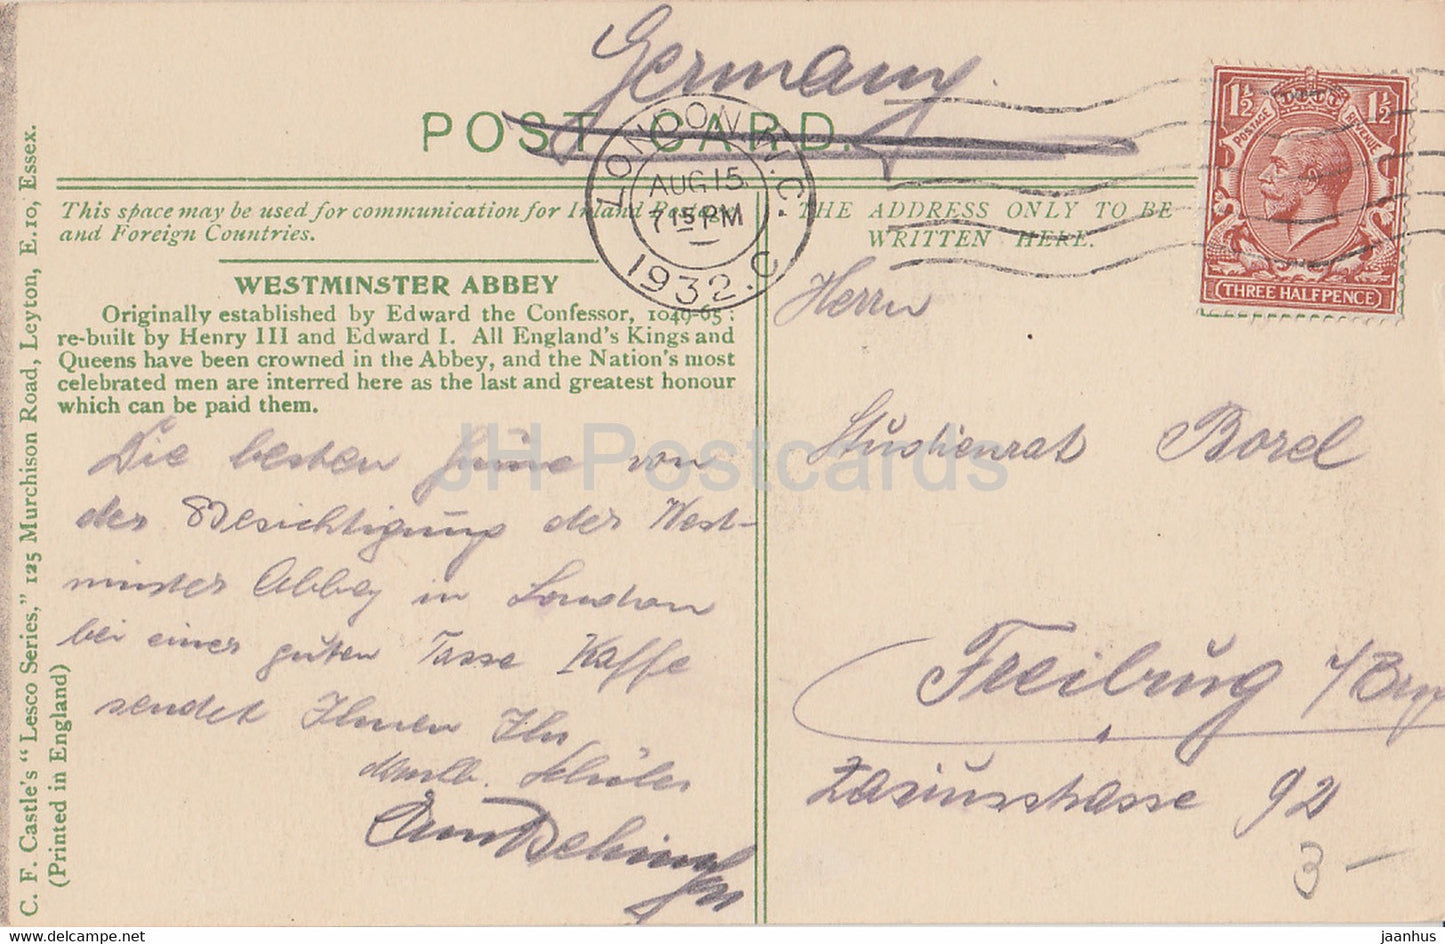 Germany.
POST CARD.
LONDON. W.C.
AUG 15
7 15 PM
1932. C
1½ 1½
POSTAGE REVENUE
THREE HALFPENCE
This space may be used for communication for Inland
and Foreign Countries.
THE ADDRESS ONLY TO BE
WRITTEN HERE.
WESTMINSTER ABBEY
Originally established by Edward the Confessor, 1049-65;
re-built by Henry III and Edward I. All England's Kings and
Queens have been crowned in the Abbey, and the Nation's most
celebrated men are interred here as the last and greatest honour
which can be paid them.
Die besten Grüsse von
der Besichtigung der West-
minster Abbey in London
bei einer guten Tasse Kaffe
sendet Ihnen Ihr
dankb. Schüler
Herrn
Studienrat Borel
Freiburg
Zasiusstrasse 92
3 -
C. F. Castle's "Lesco Series," 125 Murchison Road, Leyton, E.10, Essex.
(Printed in England)
JH Postcards
www.delcampe.net
jaanhus